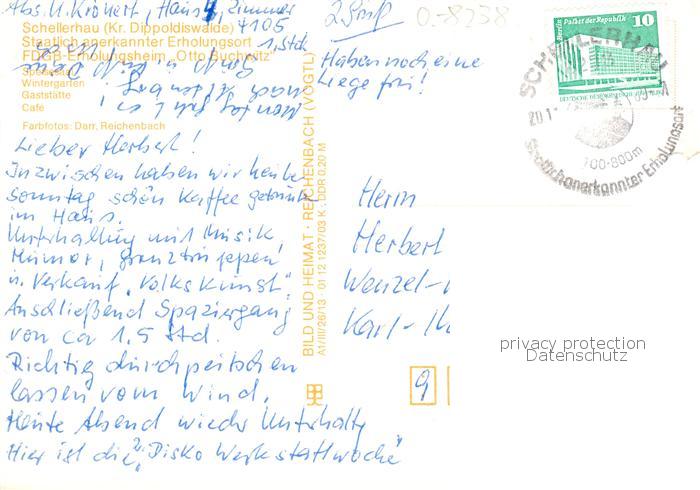 Abs. H. Krönert, Haus 4, Zimmer 4105
Schellerhau (Kr. Dippoldiswalde)
Staatlich anerkannter Erholungsort
FDGB-Erholungsheim „Otto Buchwitz"
Speisesaal
Wintergarten
Gaststätte
Cafe
Farbfotos: Darr, Reichenbach
1,5 Std.
2. Gruß
0-8238
Haben noch eine
Liege frei!
Lieber Herbert!
Inzwischen haben wir heute
Sonntag schön Kaffee getrunken
im Haus.
Unterhaltung mit Musik,
Humor,
u. Verkauf „Volkskunst".
Anschließend Spaziergang
von ca 1,5 Std.
Richtig durchpeitschen
lassen vom Wind.
Heute Abend wieder Unterhaltg
Hier ist die „Disko Werkstattwoche"
BILD UND HEIMAT · REICHENBACH (VOGTL)
A1/III/26/13 01 12 1237/03 K DDR 0,20 M
Berlin, Palast der Republik
10
DEUTSCHE DEMOKRATISCHE REPUBLIK
SCHELLERHAU
Staatlich anerkannter Erholungsort
Herrn
Herbert
Wenzel-
Karl-
9
privacy protection
Datenschutz